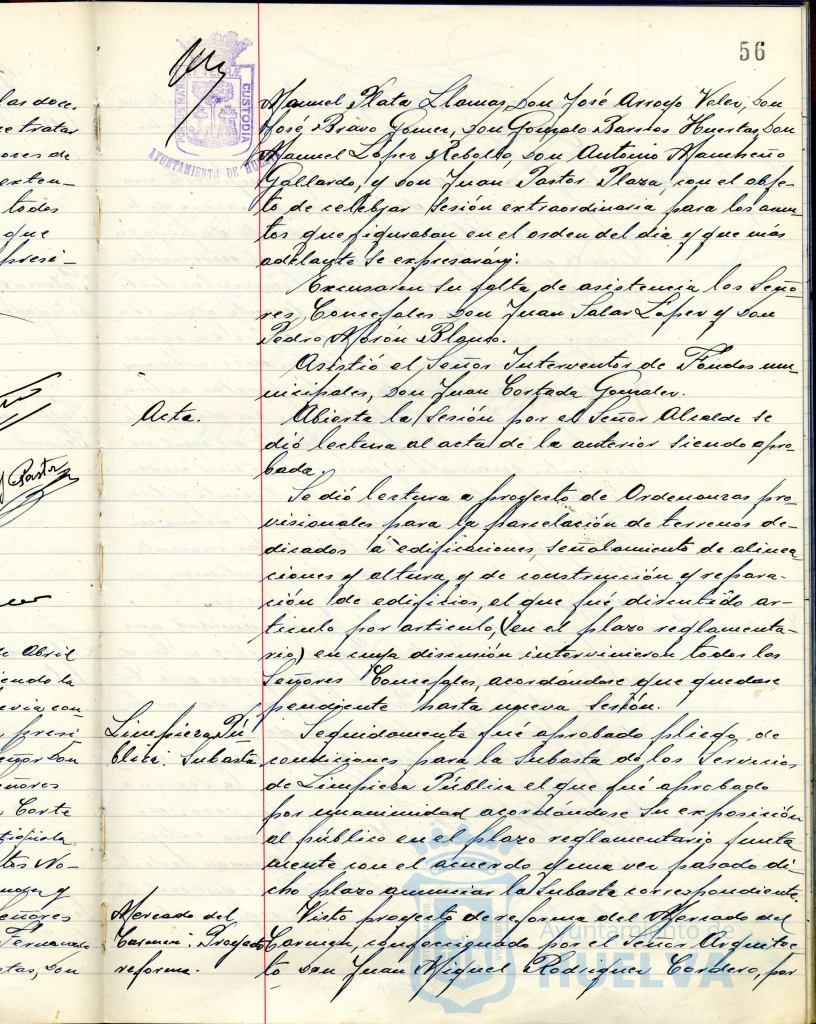 56
las doc.
e tratar
ores de
exten-
todos
que
presi-
Pastor
de Abril
iendo la
evia con
presi
eñor Don
eñores
Corte
No-
y
eñores
Fernando
tas, Don
PORTUS MARIS ET TERRÆ CUSTODIA
AYUNTAMIENTO DE HUELVA
Manuel Plata Llamas, Don José Arroyo Velez, Don
José Bravo Gomez, Don Gonzalo Barrios Huertas, Don
Manuel López Rebollo, Don Antonio Mancheño
Gallardo, y Don Juan Pastor Plaza, con el obje-
to de celebrar sesión extraordinaria para los asun-
tos que figuraban en el orden del dia y que más
adelante se expresarán:
Excusaron su falta de asistencia los Seño-
res Concejales Don Juan Salar López y Don
Pedro Morón Blanco.
Asistió el Señor Interventor de Fondos mu-
nicipales, Don Juan Cortada Gonzalez.
Acta.
Abierta la Sesión por el Señor Alcalde se
dió lectura al acta de la anterior siendo apro-
bada.
Se dió lectura a proyecto de Ordenanzas pro-
visionales para la parcelación de terrenos de-
dicados á edificaciones, señalamiento de alinea-
ciones y altura, y de construcción y repara-
ción de edificios, el que fué discutido ar-
ticulo por articulo, (en el plazo reglamenta-
rio) en cuya discusión intervinieron todos los
Señores Concejales, acordandose que quedase
pendiente hasta nueva Sesión.
Limpieza Pú-
blica: Subasta
Seguidamente fué aprobado pliego de
condiciones para la Subasta de los Servicios
de Limpieza Pública el que fué aprobado
por unanimidad acordándose su exposición
al público en el plazo reglamentario junta-
mente con el acuerdo y una vez pasado di-
cho plazo anunciar la Subasta correspondiente.
Mercado del
Carmen: Proyecto
reforma.
Visto proyecto de reforma del Mercado del
Carmen, confeccionado por el Señor Arquitec-
to Don Juan Miguel Rodriguez Cordero, por
Ayuntamiento de
HUELVA